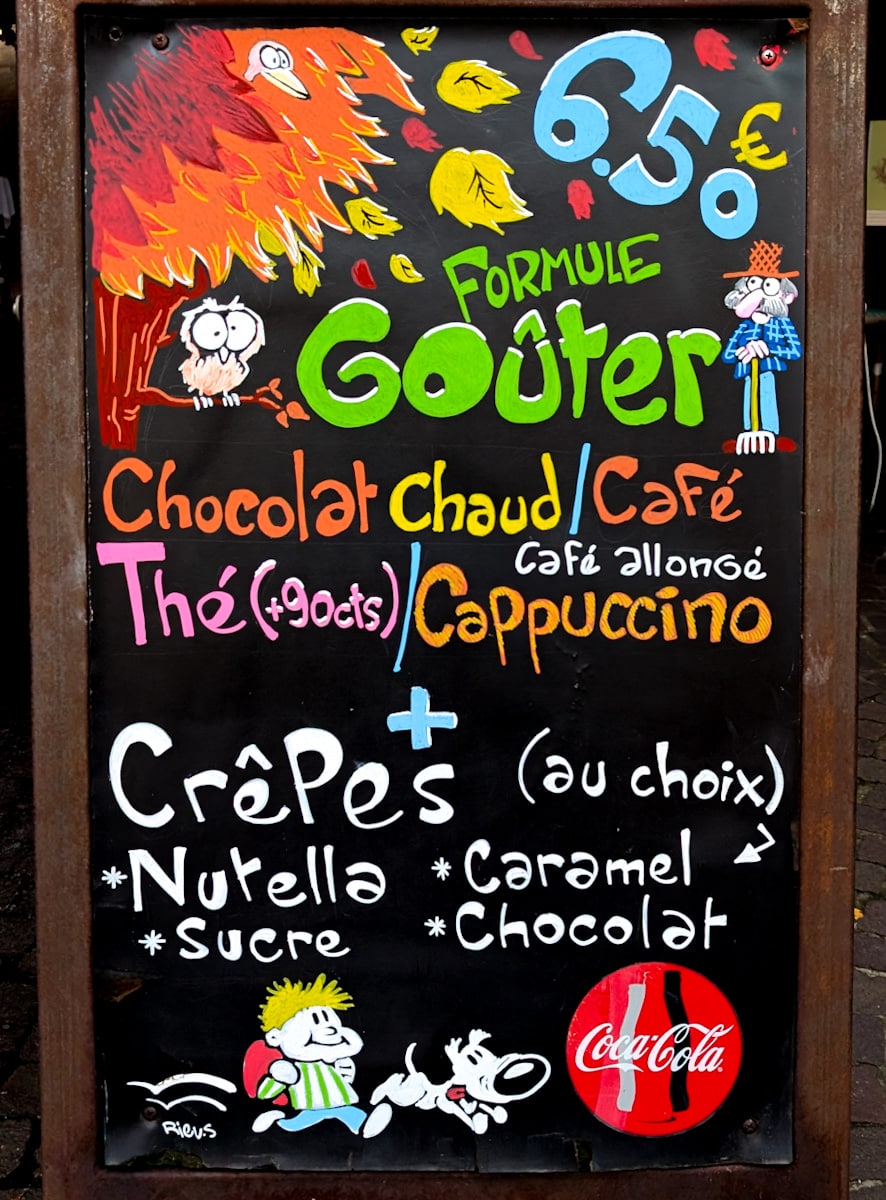 6.50€
FORMULE
Goûter
Chocolat Chaud / Café
Café allongé
Thé (+90cts) / Cappuccino
+
Crêpes (au choix)
*Nutella *Caramel
*Sucre *Chocolat
Coca-Cola